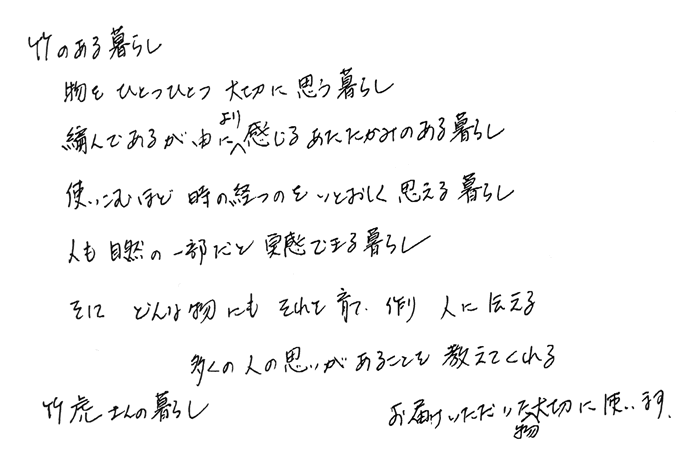 竹のある暮らし
物をひとつひとつ 大切に思う暮らし
編んであるが由により感じるあたたかみのある暮らし
使いこむほど 時の経つのをいとおしく思える暮らし
人も自然の一部だと実感できる暮らし
そして どんな物にも それを育て、作り 人に伝える
多くの人の思いがあることを 教えてくれる
竹虎さんの暮らし
お届けいただいた物大切に使います.